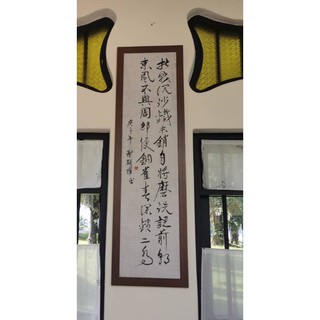 折戟沉沙鐵未銷自將磨洗認前朝
東風不與周郎便銅雀春深鎖二喬
年 書